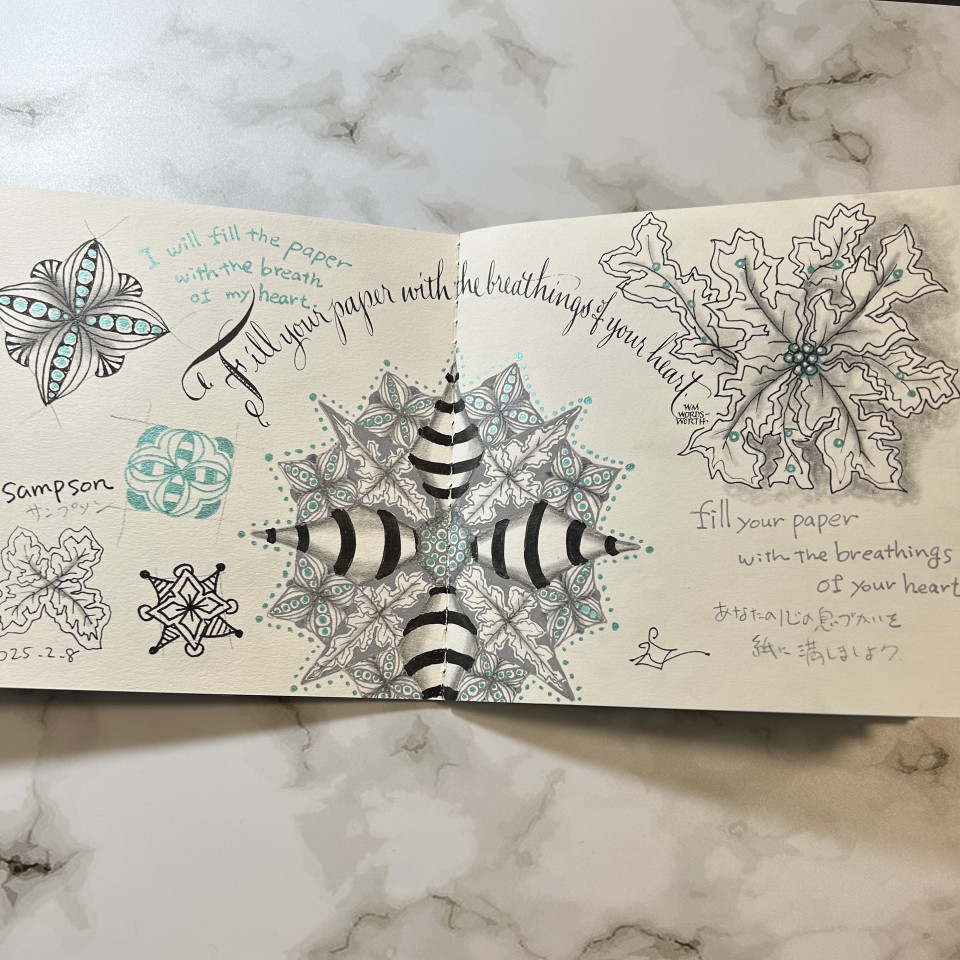 I will fill the paper
with the breath
of my heart.
Fill your paper with the breathings of your heart
WM
WORDS-
WORTH.
sampson
サンプソン
025.2.8
fill your paper
with the breathings
of your heart
あなたの心の息づかいを
紙に満しましょう